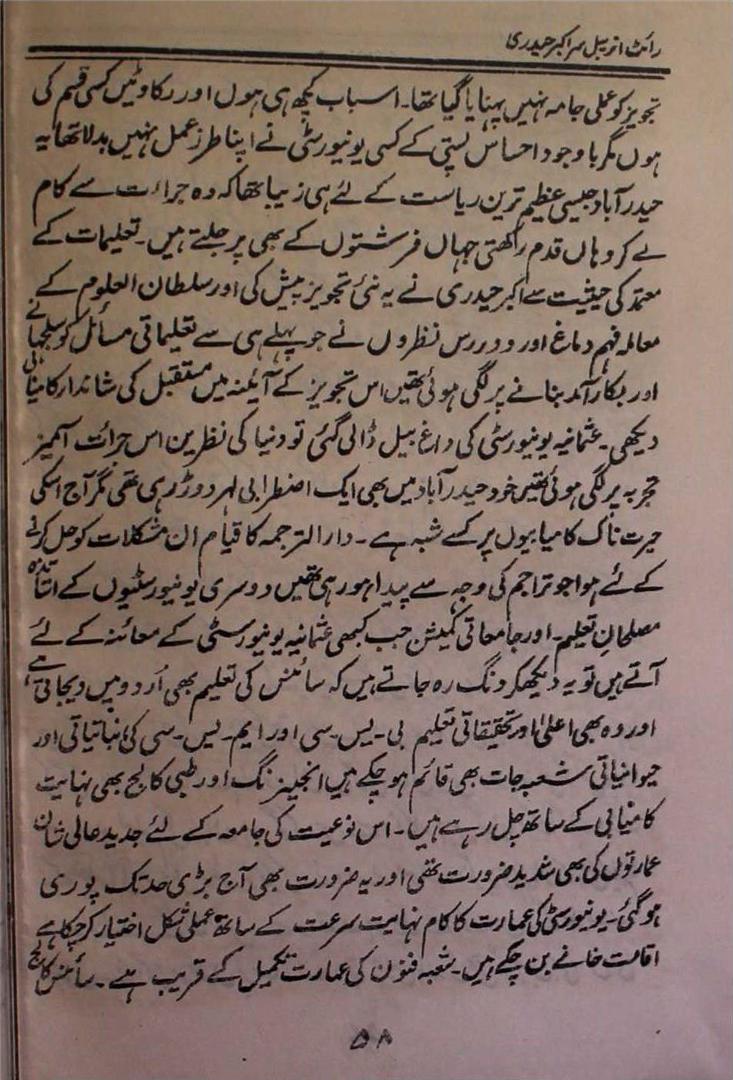 رائٹ انریبل سر اکبر حیدری
تجویز کو عملی جامہ نہیں پہنایا گیا تھا۔ اسباب کچھ ہی ہوں اور رکاوٹیں کسی قسم کی
ہوں مگر باوجود احساس پستی کے کسی یونیورسٹی نے اپنا طرز عمل نہیں بدلا تھا یہ
حیدرآباد جیسی عظیم ترین ریاست کے لئے ہی زیبا تھا کہ وہ جراءت سے کام
لے کر وہاں قدم رکھتی جہاں فرشتوں کے بھی پر جلتے ہیں۔ تعلیمات کے
معتمد کی حیثیت سے اکبر حیدری نے یہ نئی تجویز پیش کی اور سلطان العلوم کے
معاملہ فہم دماغ اور دوررس نظروں نے جو پہلے ہی سے تعلیماتی مسائل کو سلجھانے
اور بکارآمد بنانے پر لگی ہوئی تھیں اس تجویز کے آئینہ میں مستقبل کی شاندار کامیابی
دیکھی۔ عثمانیہ یونیورسٹی کی داغ بیل ڈالی گئی تو دنیا کی نظریں اس جرائت آمیز
تجربہ پر لگی ہوئی تھیں خود حیدرآباد میں بھی ایک اضطرابی لہر دوڑ رہی تھی مگر آج اسکی
حیرت ناک کامیابیوں پر کسے شبہ ہے۔ دارالترجمہ کا قیام ان مشکلات کو حل کرنے
کے لئے ہوا جو تراجم کی وجہ سے پیدا ہو رہی تھیں دوسری یونیورسٹیوں کے اساتذہ
مصلحانِ تعلیم۔ اور جامعاتی کمیشن جب کبھی عثمانیہ یونیورسٹی کے معائنہ کے لئے
آتے ہیں تو یہ دیکھکر دنگ رہ جاتے ہیں کہ سائنس کی تعلیم بھی اُردو میں دیجاتی ہے
اور وہ بھی اعلیٰ اور تحقیقاتی تعلیم بی۔یس۔سی اور ایم۔یس۔سی کی نباتیاتی اور
حیوانیاتی شعبہ جات بھی قائم ہو چکے ہیں انجینیرنگ اور طبی کالج بھی نہایت
کامیابی کے ساتھ چل رہے ہیں۔ اس نوعیت کی جامعہ کے لئے جدید عالی شان
عمارتوں کی بھی شدید ضرورت تھی اور یہ ضرورت بھی آج بڑی حد تک پوری
ہو گئی۔ یونیورسٹی کی عمارت کا کام نہایت سرعت کے ساتھ عملی شکل اختیار کر چکا ہے
اقامت خانے بن چکے ہیں۔ شعبہ فنون کی عمارت تکمیل کے قریب ہے۔ سائنس کالج
۵۸